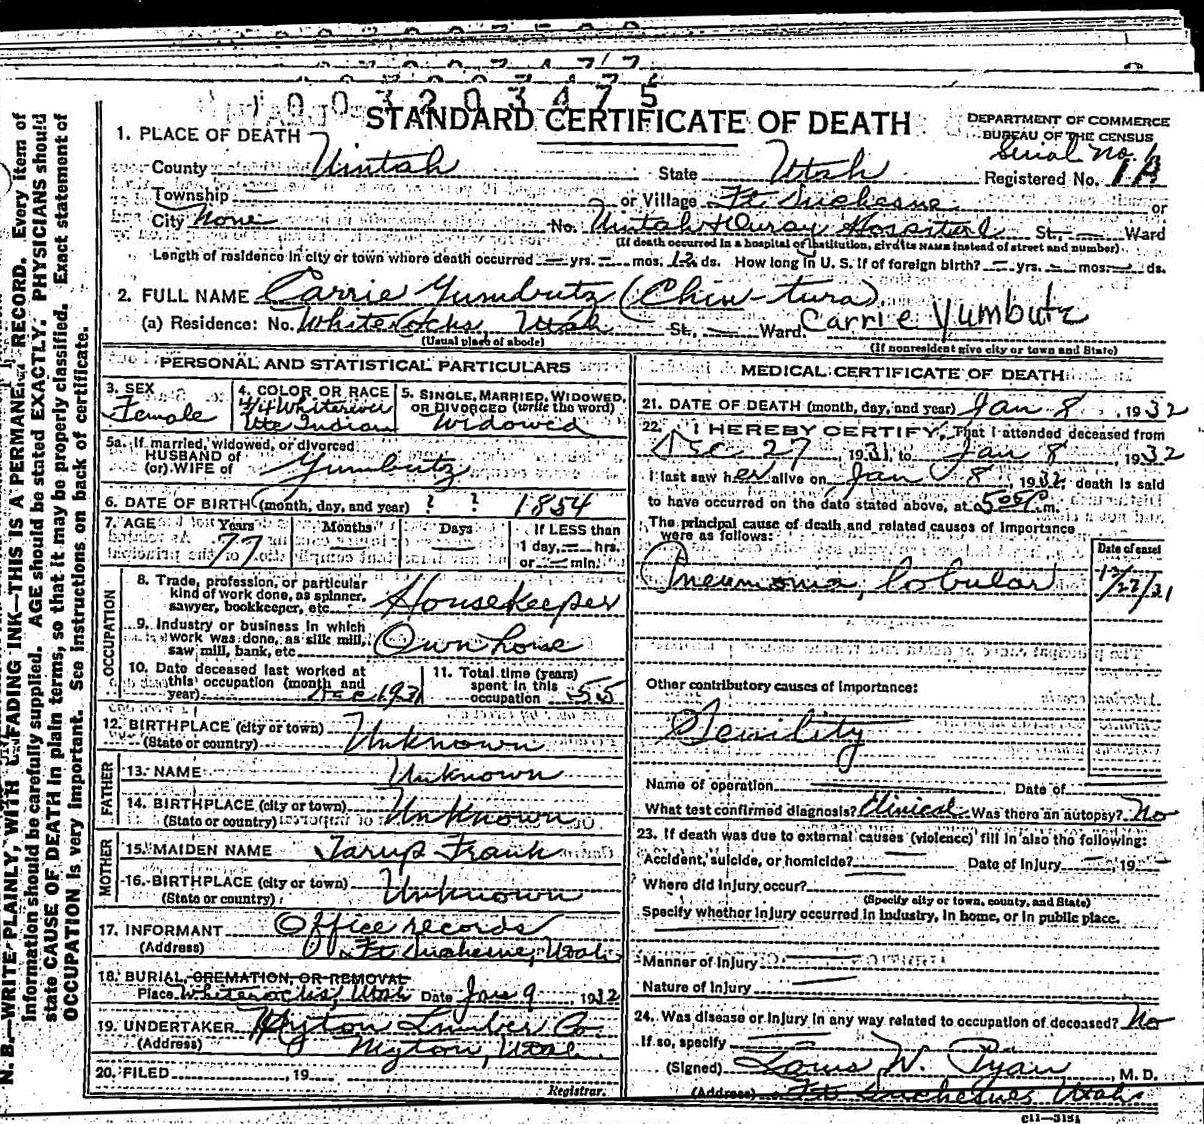 1003203475
STANDARD CERTIFICATE OF DEATH
DEPARTMENT OF COMMERCE
BUREAU OF THE CENSUS
1. PLACE OF DEATH
Serial No.
County Uintah State Utah Registered No. 1A
Township — or Village Ft. Duchesne or
City None No. Uintah & Ouray Hospital St., — Ward
(If death occurred in a hospital or institution, give its NAME instead of street and number)
Length of residence in city or town where death occurred — yrs. — mos. 12 ds. How long in U. S. if of foreign birth? — yrs. — mos. — ds.
2. FULL NAME Carrie Yumbutz (Chin-tura)
Carrie Yumbutz
(a) Residence: No. Whiterocks, Utah St., — Ward.
(Usual place of abode) (If nonresident give city or town and State)
PERSONAL AND STATISTICAL PARTICULARS
3. SEX Female
4. COLOR OR RACE 4/4 Whiteriver Ute Indian
5. SINGLE, MARRIED, WIDOWED, OR DIVORCED (write the word) Widowed
5a. If married, widowed, or divorced
HUSBAND of
(or) WIFE of Yumbutz
6. DATE OF BIRTH (month, day, and year) ? ? 1854
7. AGE Years 77 Months — Days — If LESS than
1 day, — hrs.
or — min.
OCCUPATION
8. Trade, profession, or particular
kind of work done, as spinner,
sawyer, bookkeeper, etc. Housekeeper
9. Industry or business in which
work was done, as silk mill,
saw mill, bank, etc. Own home
10. Date deceased last worked at
this occupation (month and
year) Dec 1931
11. Total time (years)
spent in this
occupation 55
12. BIRTHPLACE (city or town)
(State or country) Unknown
FATHER
13. NAME Unknown
14. BIRTHPLACE (city or town)
(State or country) Unknown
MOTHER
15. MAIDEN NAME Tarup Frank
16. BIRTHPLACE (city or town)
(State or country) Unknown
17. INFORMANT Office records
(Address) Ft Duchesne, Utah
18. BURIAL, CREMATION, OR REMOVAL
Place Whiterocks, Utah Date Jan 9, 1932
19. UNDERTAKER Myton Lumber Co.
(Address) Myton, Utah
20. FILED , 19
Registrar.
MEDICAL CERTIFICATE OF DEATH
21. DATE OF DEATH (month, day, and year) Jan 8, 1932
22. I HEREBY CERTIFY, That I attended deceased from
Dec 27, 1931, to Jan 8, 1932
I last saw her alive on Jan 8, 1932, death is said
to have occurred on the date stated above, at 5:05 P. m.
The principal cause of death and related causes of importance
were as follows:
Date of onset
Pneumonia, lobular 12/27/31
Other contributory causes of importance:
Senility
Name of operation — Date of
What test confirmed diagnosis? Clinical Was there an autopsy? No
23. If death was due to external causes (violence) fill in also the following:
Accident, suicide, or homicide? — Date of injury —, 19 —
Where did injury occur?
(Specify city or town, county, and State)
Specify whether injury occurred in industry, in home, or in public place.
Manner of injury
Nature of injury
24. Was disease or injury in any way related to occupation of deceased? No
If so, specify
(Signed) W. Ryan, M. D.
(Address) Ft Duchesne, Utah
c11—3151
N. B.—WRITE PLAINLY, WITH UNFADING INK—THIS IS A PERMANENT RECORD. Every item of
information should be carefully supplied. AGE should be stated EXACTLY. PHYSICIANS should
state CAUSE OF DEATH in plain terms, so that it may be properly classified. Exact statement of
OCCUPATION is very important. See instructions on back of certificate.